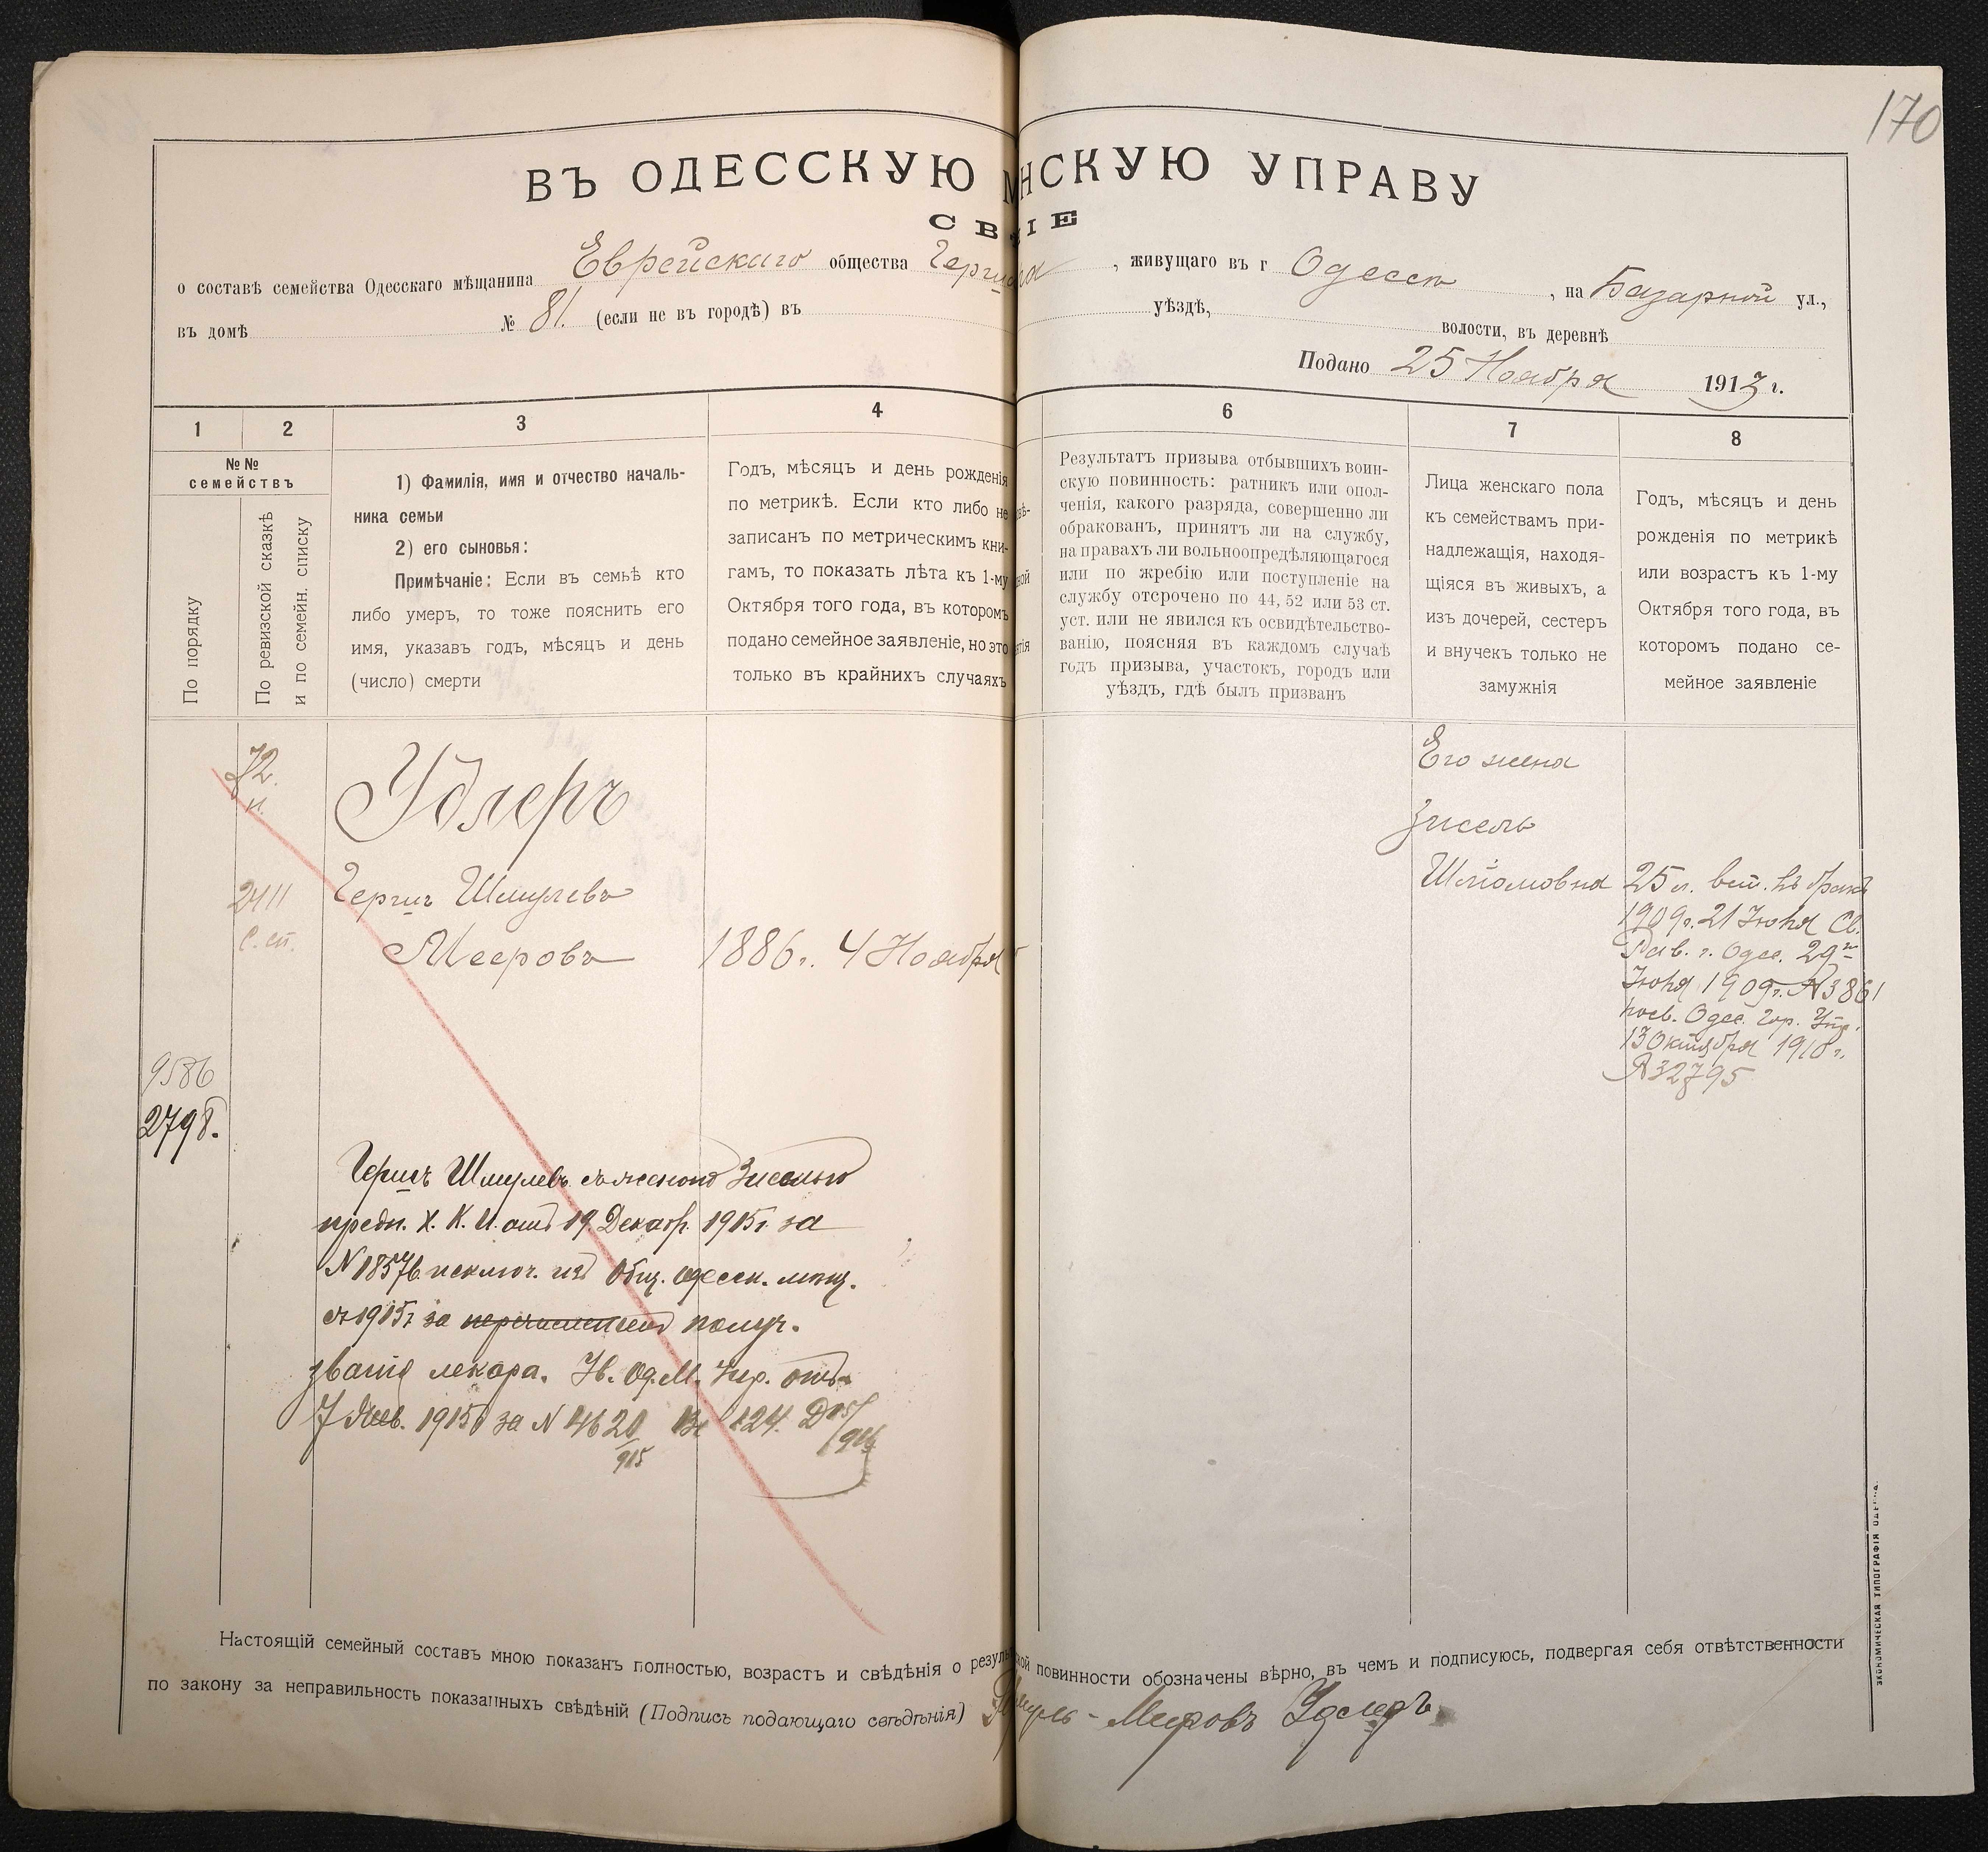 170
ВЪ ОДЕССКУЮ М НСКУЮ УПРАВУ
СВ ІЕ
о составѣ семейства Одесскаго мѣщанина Еврейскаго общества , живущаго въ г Одессѣ , на Базарной ул.,
въ домѣ № 81. (если не въ городѣ) въ уѣздѣ, волости, въ деревнѣ
Подано 25 Ноября 1913 г.
1 2 3 4 6 7 8
№№
семействъ
По порядку
По ревизской сказкѣ
и по семейн. списку
1) Фамилія, имя и отчество началь-
ника семьи
2) его сыновья:
Примѣчаніе: Если въ семьѣ кто
либо умеръ, то тоже пояснить его
имя, указавъ годъ, мѣсяцъ и день
(число) смерти
Годъ, мѣсяцъ и день рожденія
по метрикѣ. Если кто либо не
записанъ по метрическимъ кни-
гамъ, то показать лѣта къ 1-му
Октября того года, въ которомъ
подано семейное заявленіе, но это
только въ крайнихъ случаяхъ
Результатъ призыва отбывшихъ воин-
скую повинность: ратникъ или опол-
ченія, какого разряда, совершенно ли
обракованъ, принятъ ли на службу,
на правахъ ли вольноопредѣляющагося
или по жребію или поступленіе на
службу отсрочено по 44, 52 или 53 ст.
уст. или не явился къ освидѣтельство-
ванію, поясняя въ каждомъ случаѣ
годъ призыва, участокъ, городъ или
уѣздъ, гдѣ былъ призванъ
Лица женскаго пола
къ семействамъ при-
надлежащія, находя-
щіяся въ живыхъ, а
изъ дочерей, сестеръ
и внучекъ только не
замужнія
Годъ, мѣсяцъ и день
рожденія по метрикѣ
или возрастъ къ 1-му
Октября того года, въ
которомъ подано се-
мейное заявленіе
72
Удлеръ
2411
с. сп.
Гершъ Шмулевъ
Мееровъ
1886 г. 4 Ноября
9586
2798.
Его жена
Зисель
Шлёмовна
25 л. вст. въ бракъ
1909 г. 21 Іюня Св.
Рав. г. Одес. 29го
Іюня 1909 г. № 3861
Одес. Гор. Упр.
13 Октября 1910 г.
№ 32795
Гершъ Шмулевъ съ женою Зиселью
предп. Х. К. П. отъ 19 Декабр. 1915 г. за
№ 18576 исключ. изъ Общ. Одесск. мѣщ.
съ 1915 г за перечисленіемъ получ.
званія лекаря. Ув. Од. М. Упр. отъ
7 1915 за № 4620/915
124.
Настоящій семейный составъ мною показанъ полностью, возрастъ и свѣдѣнія о резуль ской повинности обозначены вѣрно, въ чемъ и подписуюсь, подвергая себя отвѣтственности
по закону за неправильность показанныхъ свѣдѣній (Подпись подающаго свѣдѣнія) Шмуль-Мееровъ Удлеръ
ЭКОНОМИЧЕСКАЯ ТИПОГРАФІЯ